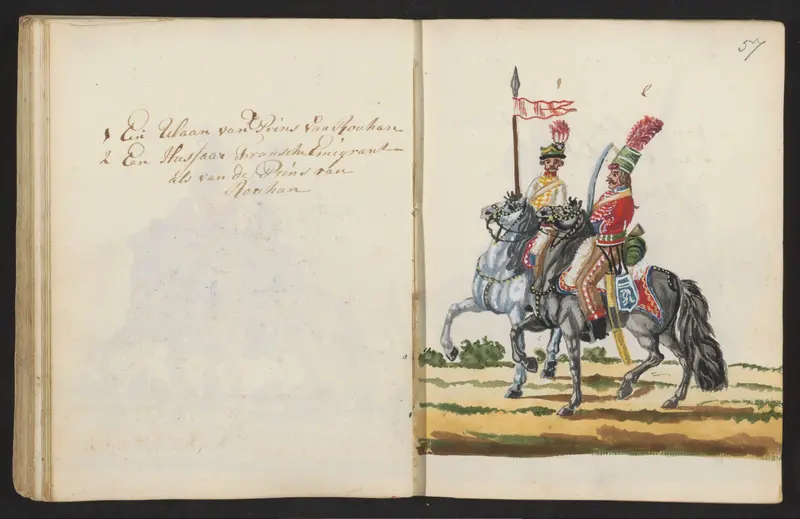 1 Ein Ulaan van Prins van Rouhan
2 Een Husfaar Fransche Emigrant
als van de Prins van
Rouhan
57
1 2